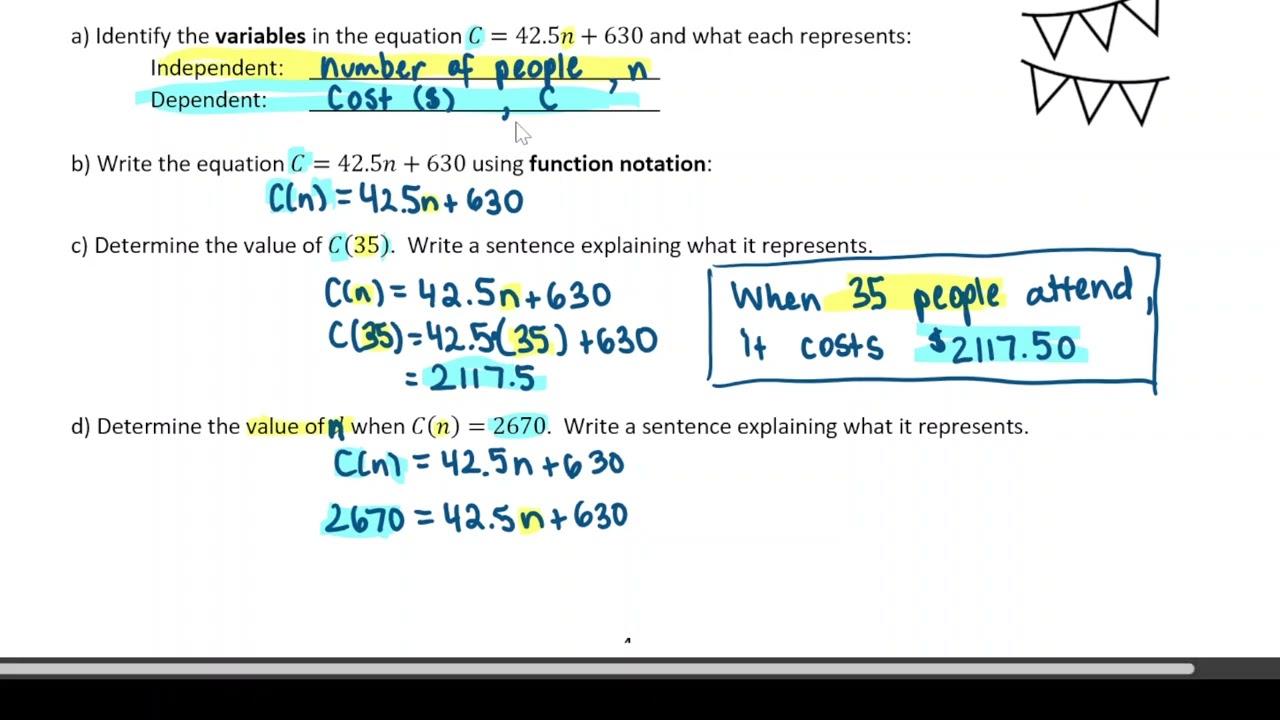 a) Identify the variables in the equation C = 42.5n + 630 and what each represents:
Independent: number of people, n
Dependent: Cost ($), C
b) Write the equation C = 42.5n + 630 using function notation:
C(n) = 42.5n + 630
c) Determine the value of C(35). Write a sentence explaining what it represents.
C(n) = 42.5n + 630
C(35) = 42.5(35) + 630
= 2117.5
When 35 people attend,
it costs $2117.50
d) Determine the value of n when C(n) = 2670. Write a sentence explaining what it represents.
C(n) = 42.5n + 630
2670 = 42.5n + 630